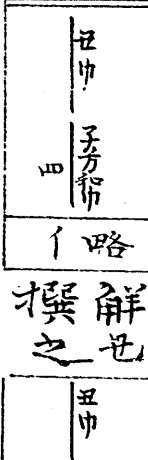 丑巾
子方和巾
四
略
亻
解也
撰之
丑巾